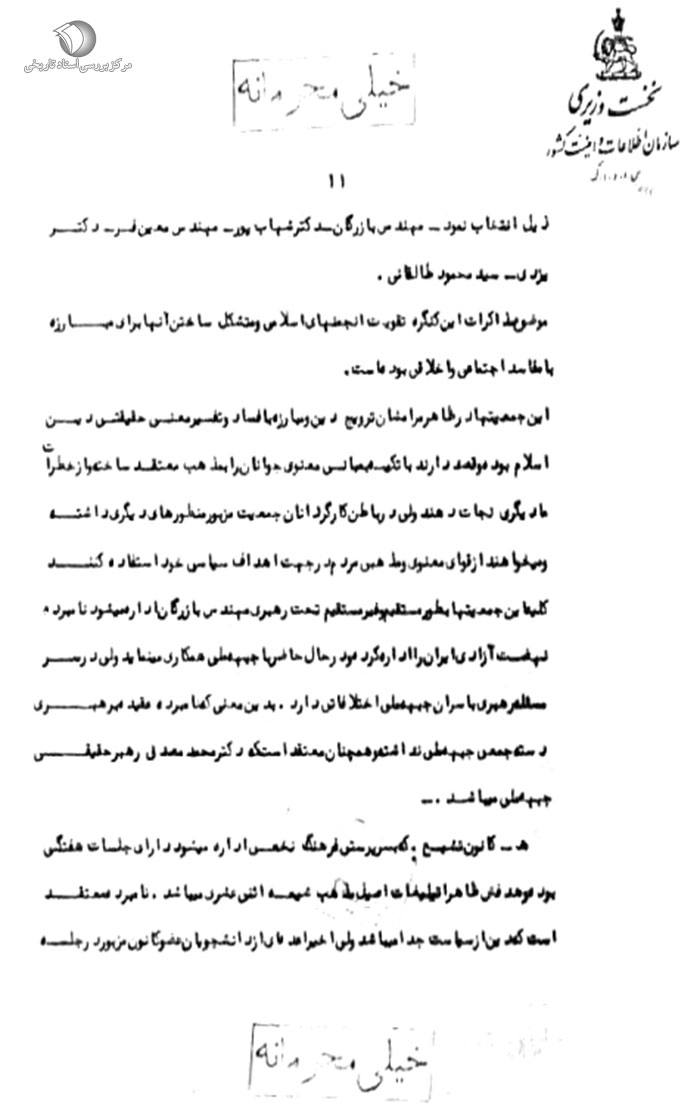 مرکز بررسی اسناد تاریخی
خیلی محرمانه
نخست وزیری
سازمان اطلاعات و امنیت کشور
۱۱
ذیل انتخاب نمود ـ مهندس بازرگان ـ دکتر شهاب پور ـ مهندس معین فر ـ دکتر
یزدی ـ سید محمود طالقانی .
موضوع مذاکرات این کنگره تقویت انجمنهای اسلامی و متشکل ساختن آنها برای مبارزه
با مفاسد اجتماعی و اخلاقی بوده است .
این جمعیتها در ظاهر مرامشان ترویج دین و مبارزه با فساد و تفسیر معنی حقیقتی دین
اسلام بوده و قصد دارند با تکیه بمبانی معنوی جوانان را بمذهب معتقد ساخته و از خطرات
مادیگری نجات دهند ولی در باطن کارگردانان جمعیت مزبور منظورهای دیگری داشته
و میخواهند از قوای معنوی و مذهبی مردم در جهت اهداف سیاسی خود استفاده کنند
کلیه این جمعیتها بطور مستقیم و غیر مستقیم تحت رهبری مهندس بازرگان اداره میشود نامبرده
نهضت آزادی ایران را اداره کرده و در حال حاضر با جبهه ملی همکاری مینماید ولی در سر
مسئله رهبری با سران جبهه ملی اختلافاتی دارد . بدین معنی که نامبرده عقیده برهبری
دسته جمعی جبهه ملی نداشته و همچنان معتقد است که دکتر محمد مصدق رهبر حقیقی
جبهه ملی میباشد . ــ
هـ ـ کانون تشیع . که بسرپرستی فرهنگ نخعی اداره میشود دارای جلسات هفتگی
بوده و هدفش ظاهرا تبلیغات اصیل مذهب شیعه اثنی عشری میباشد . نامبرده معتقد
است که دین از سیاست جدا میباشد ولی اخیرا عده ای از دانشجویان عضو کانون مزبور در جلسه
خیلی محرمانه